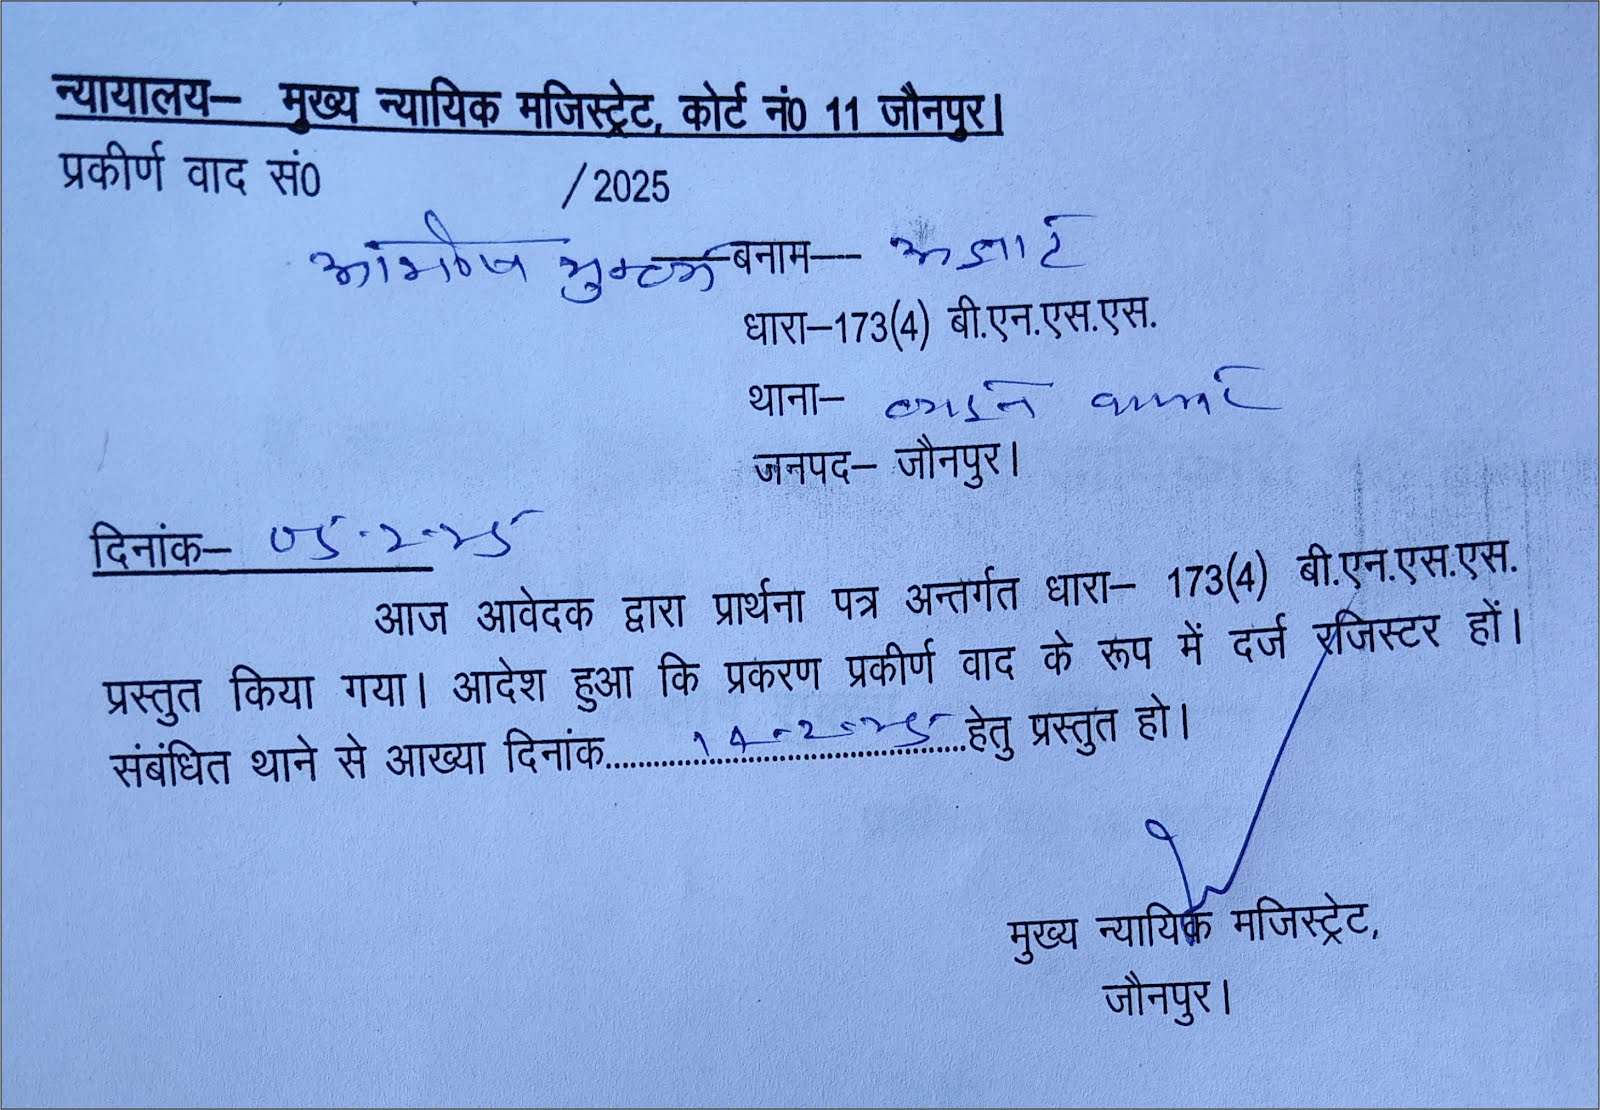 न्यायालय– मुख्य न्यायिक मजिस्ट्रेट, कोर्ट नं0 11 जौनपुर।
प्रकीर्ण वाद सं0 /2025
बनाम–– अज्ञात
धारा–173(4) बी.एन.एस.एस.
थाना– लाइन बाजार
जनपद– जौनपुर।
दिनांक– 05.2.25
आज आवेदक द्वारा प्रार्थना पत्र अन्तर्गत धारा– 173(4) बी.एन.एस.एस.
प्रस्तुत किया गया। आदेश हुआ कि प्रकरण प्रकीर्ण वाद के रूप में दर्ज रजिस्टर हों।
संबंधित थाने से आख्या दिनांक....14.2.25....हेतु प्रस्तुत हो।
मुख्य न्यायिक मजिस्ट्रेट,
जौनपुर।